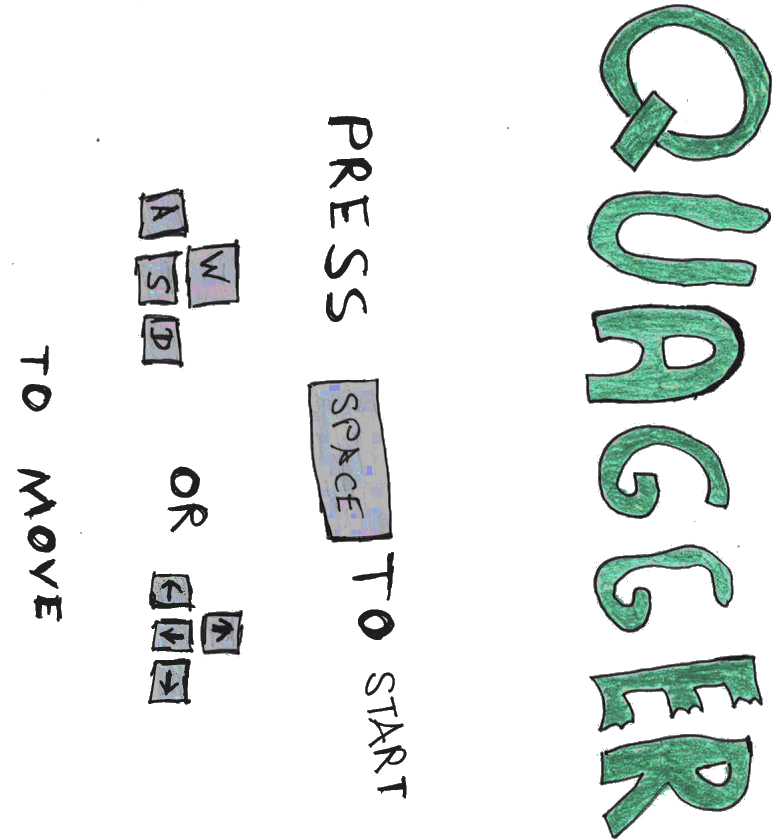 QUAGGER
PRESS SPACE TO START
W
A S D OR
TO MOVE